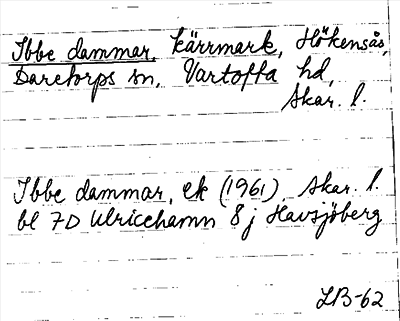 Ibbe dammar, kärrmark, Hökensås,
Daretorps sn, Vartofta hd,
Skar. l.
Ibbe dammar, ek (1961), Skar. l.
bl 7D Ulricehamn 8 j Havsjöberg
LB-62